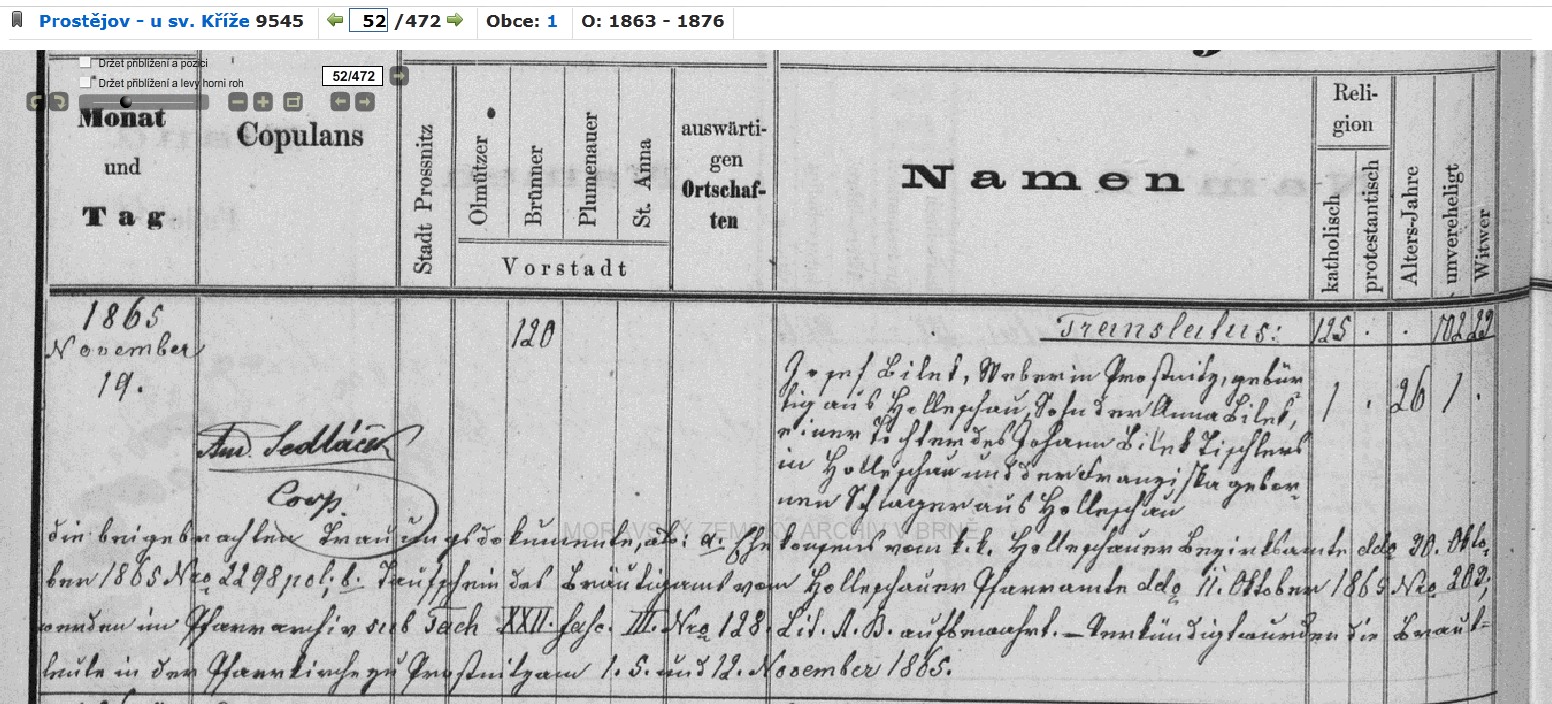 Prostějov - u sv. Kříže 9545
52 /472
Obce: 1
O: 1863 - 1876
Držet přiblížení a pozici
Držet přiblížení a levý horní roh
52/472
Monat
und
Tag
Copulans
Stadt Prossnitz
Olmützer
Brünner
Plumenauer
St. Anna
Vorstadt
auswärti-
gen
Ortschaf-
ten
Namen
Reli-
gion
katholisch
protestantisch
Alters-Jahre
unvereheligt
Witwer
1865
November
19.
And. Sedláček
Coop.
120
Translatus: 125 . . 102 22
Josef Bilek, Weber in Proßnitz, gebür
tig aus Holleschau, Sohn der Anna Bilek,
einer Tochter des Johann Bilek Tischlers
in Holleschau und der Franziska gebor-
nen Schlager aus Holleschau
1 . 26 1 .
die beigebrachten Trauungsdokumente, als: a. Ehekonsens vom k.k. Holleschauer Bezirksamte ddo 20. Okto-
ber 1865 Nro 2298 pol; b. Taufschein des Bräutigams vom Holleschauer Pfarramte ddo 11. Oktober 1865 Nro 202,
werden im Pfarrarchiv sub Fach XXII. fasc. III. Nro 128. Lit. A. B. aufbewahrt. – Verkündigt wurden die Braut-
leute in der Pfarrkirche zu Proßnitz am 1. 5. und 12. November 1865.
MORAVSKÝ ZEMSKÝ ARCHIV V BRNĚ